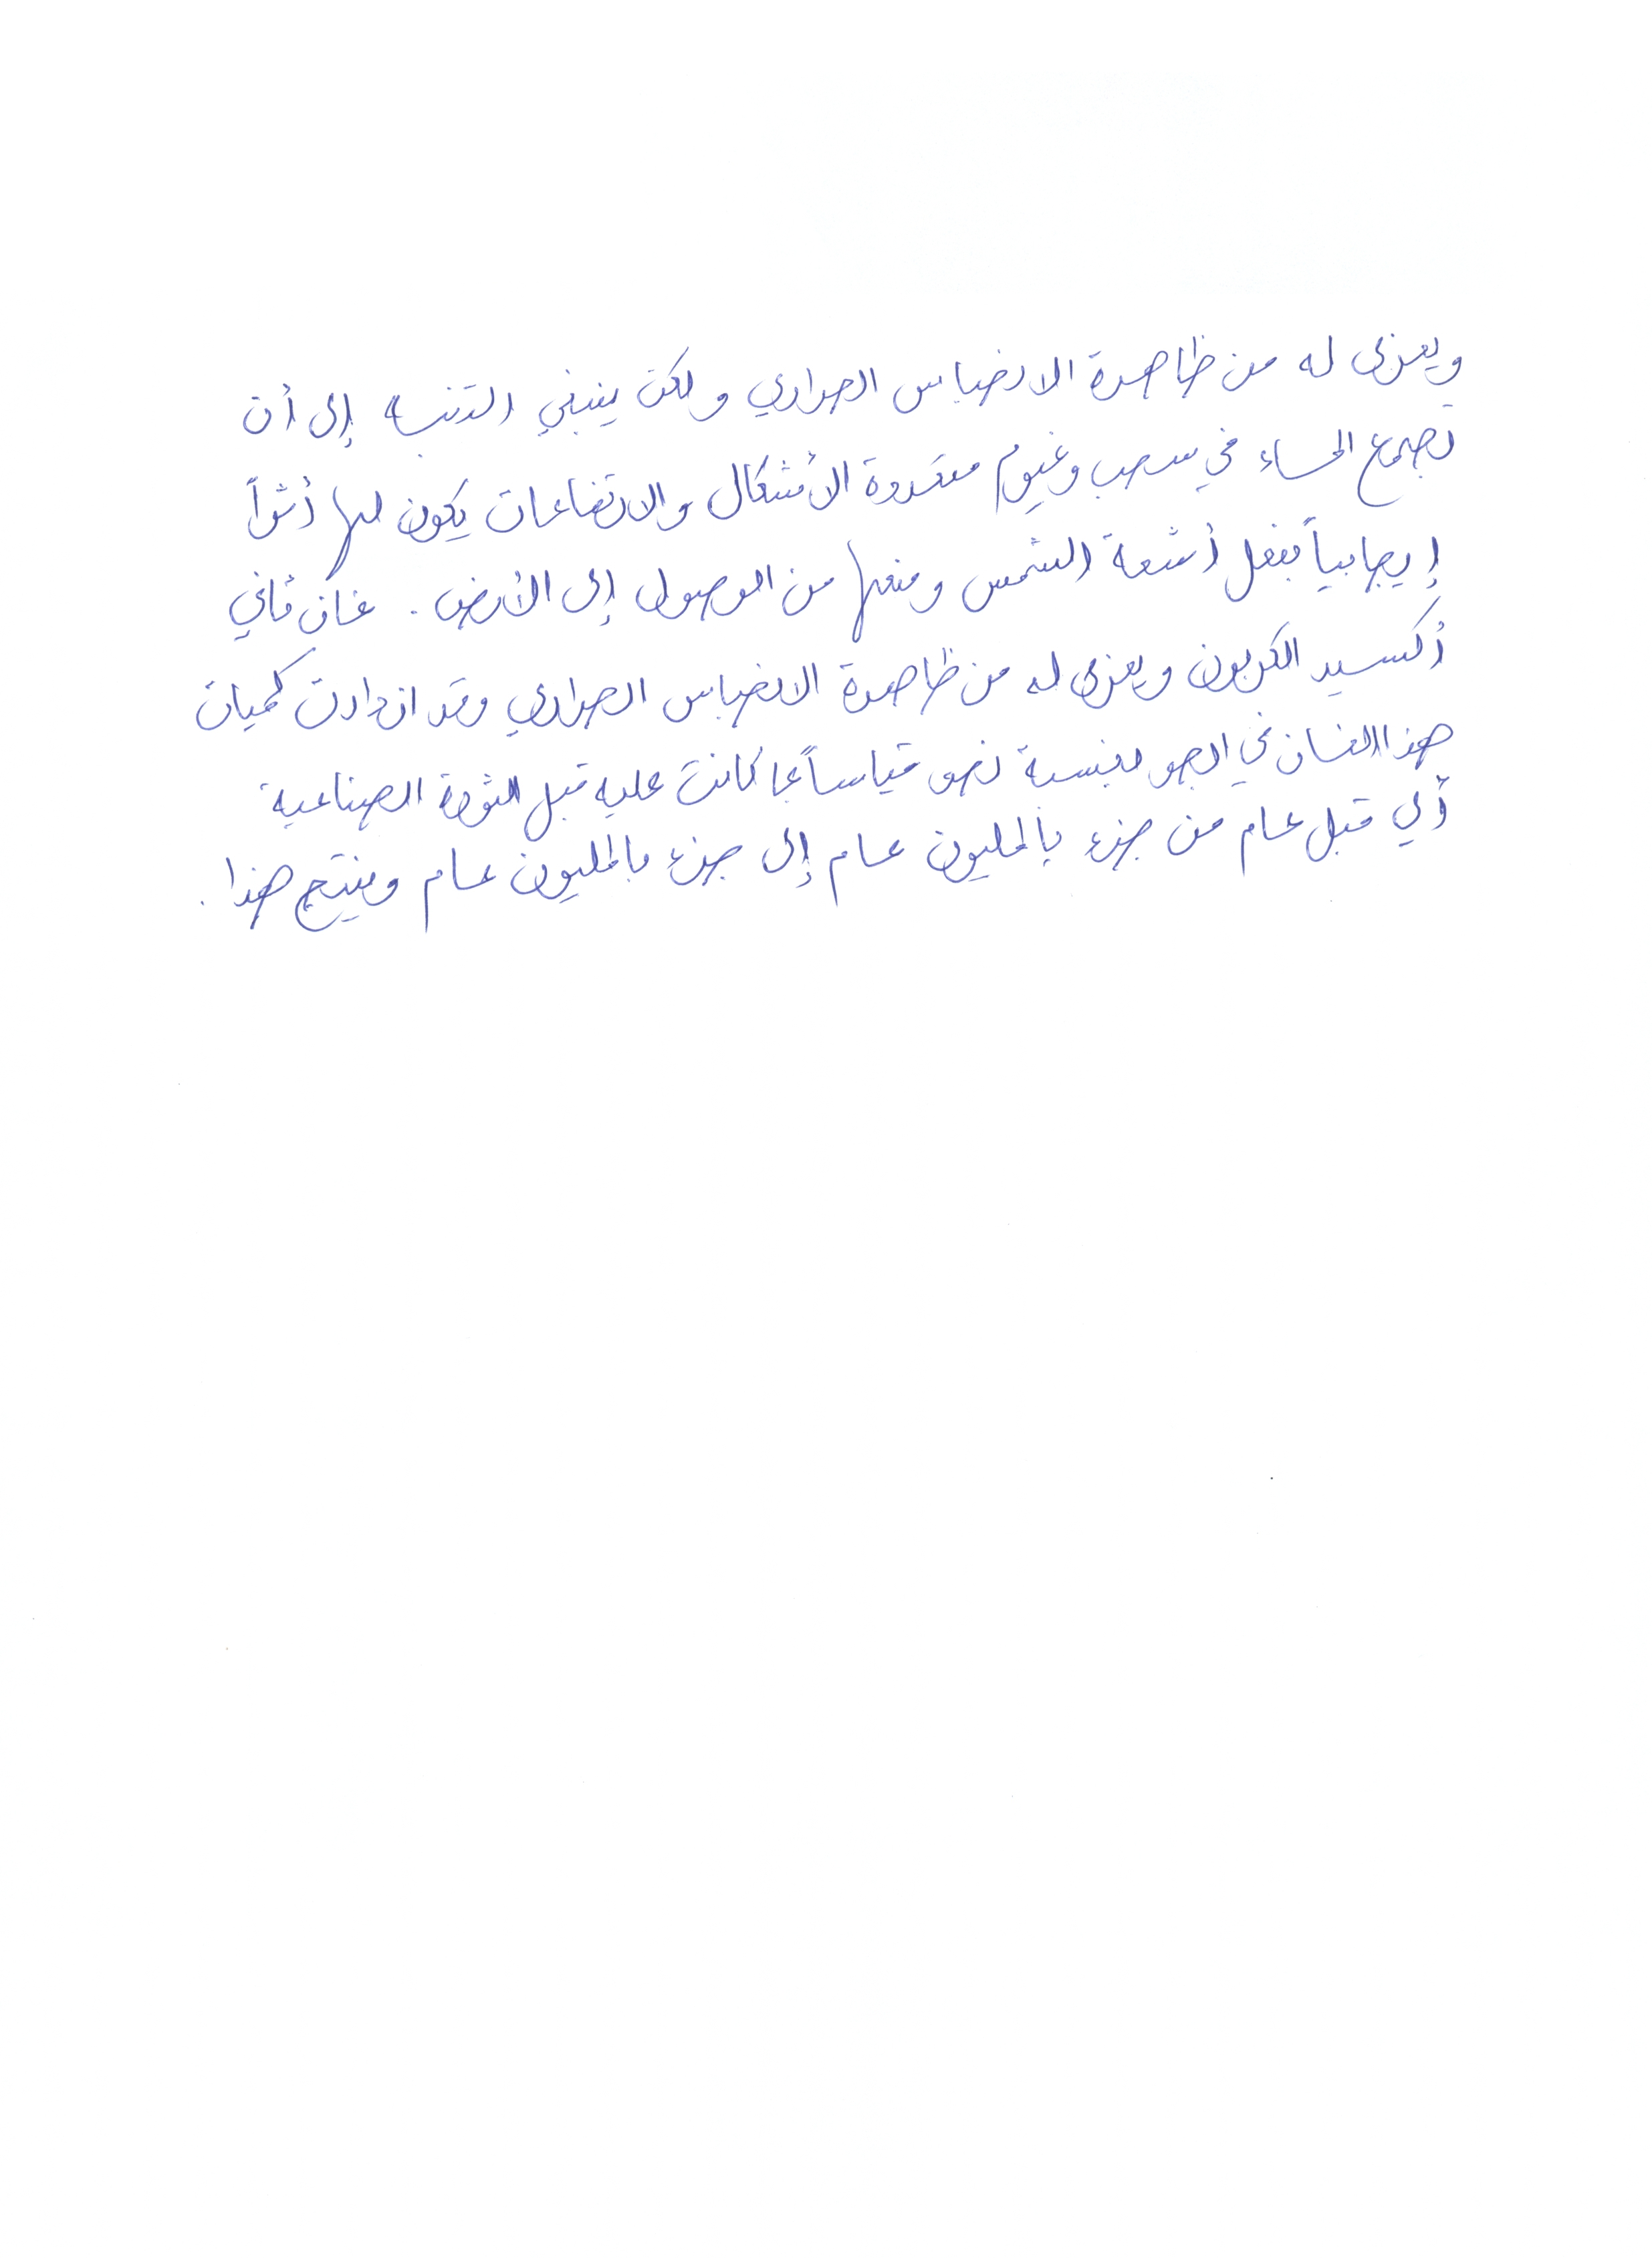 ويعزى له من ظاهرة الانحباس الحراري ولكن ينبغي التنبه إلى أن
تجمع الماء في سحب وغيوم متعددة الأشكال والارتفاعات يكون لها أثراً
إيجابياً بفعل أشعة الشمس ومنعها من الوصول إلى الأرض. غاز ثاني
أكسيد الكربون ويعزى له من ظاهرة الانحباس الحراري وقد ازدادت كميات
هذا الغاز في الجو بنسبة نحو قياساً بما كانت عليه قبل الثورة الصناعية
أي قبل عام من جزء بالمليون عام إلى جزء بالمليون عام وينتج هذا.